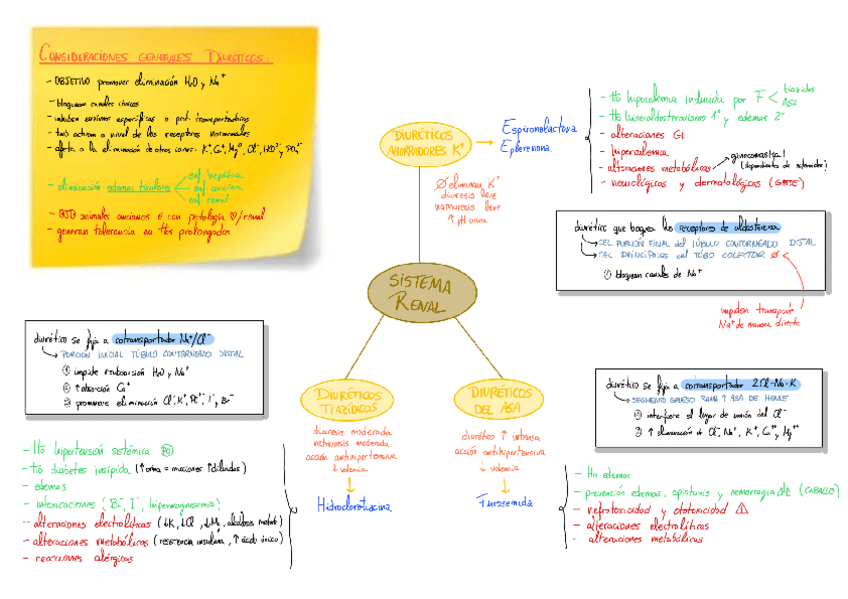 CONSIDERACIONES GENERALES DIURÉTICOS:
- OBJETIVO promover eliminación H₂O y Na⁺
- bloquean canales iónicos
- inhiben enzimas específicas o prot. transportadoras
- tmb actúan a nivel de los receptores hormonales
- afecta a la eliminación de otros iones: K⁺, Ca⁺, Mg⁺, Cl⁻, HCO³⁻ y PO₄⁻
- eliminación edemas tisulares
enf. hepática
enf. cardíaca
enf. renal
animales ancianos ó con patología ♡/renal
- generan tolerancia en ttos prolongados
DIURÉTICOS
AHORRADORES K⁺
Espironolactona
Eplerenona
Ø eliminan K⁺
diuresis leve
natriuresis leve
↑ pH orina
- tto hipocalemia inducida por F
tiazidas
ASA
- tto hiperaldosteronismo 1º y edemas 2º
- alteraciones GI
- hipercalemia
- alteraciones metabólicas
ginecomastia!
- neurológicos y dermatológicos
diurético que bloquea los receptores de aldosterona
CEL PORCIÓN FINAL del TÚBULO CONTORNEADO DISTAL
CEL PRINCIPALES del TUBO COLECTOR Ø
① bloquean canales de Na⁺
impiden transporte
Na⁺ de manera directa
SISTEMA
RENAL
diurético se fija a cotransportador Na⁺/Cl⁻
PORCIÓN INICIAL TÚBULO CONTORNEADO DISTAL
① impide reabsorción H₂O y Na⁺
② ↑ absorción Ca⁺
③ promueve eliminación Cl⁻, K⁺, I⁻, Br⁻
DIURÉTICOS
TIAZÍDICOS
diuresis moderada
natriuresis moderada
acción antihipertensiva
↓ volemia
Hidroclorotiacina
- tto hipertensión sistémica PO
- tto diabetes insípida (↑ orina = micciones ↑ diluidas)
- edemas
- intoxicaciones (Br⁻, I⁻, hipermagnesemia)
- alteraciones electrolíticas (↓K, ↓Cl, ↓Mg, alcalosis metab)
- alteraciones metabólicas (resistencia insulina, ↑ ácido úrico)
- reacciones alérgicas
DIURÉTICOS
DEL ASA
diurético ↑ intensa
acción antihipertensiva
↓ volemia
Furosemida
diurético se fija a cotransportador 2Cl-Na-K
SEGMENTO GRUESO RAMA ↑ ASA DE HENLE
① interfiere el lugar de unión del Cl⁻
② ↑ eliminación de Cl⁻, Na⁺, K⁺, Ca⁺, Mg⁺
- tto edemas
- prevención edemas, epistaxis y hemorragia (CABALLO)
- nefrotoxicidad y ototoxicidad ⚠
- alteraciones electrolíticas
- alteraciones metabólicas